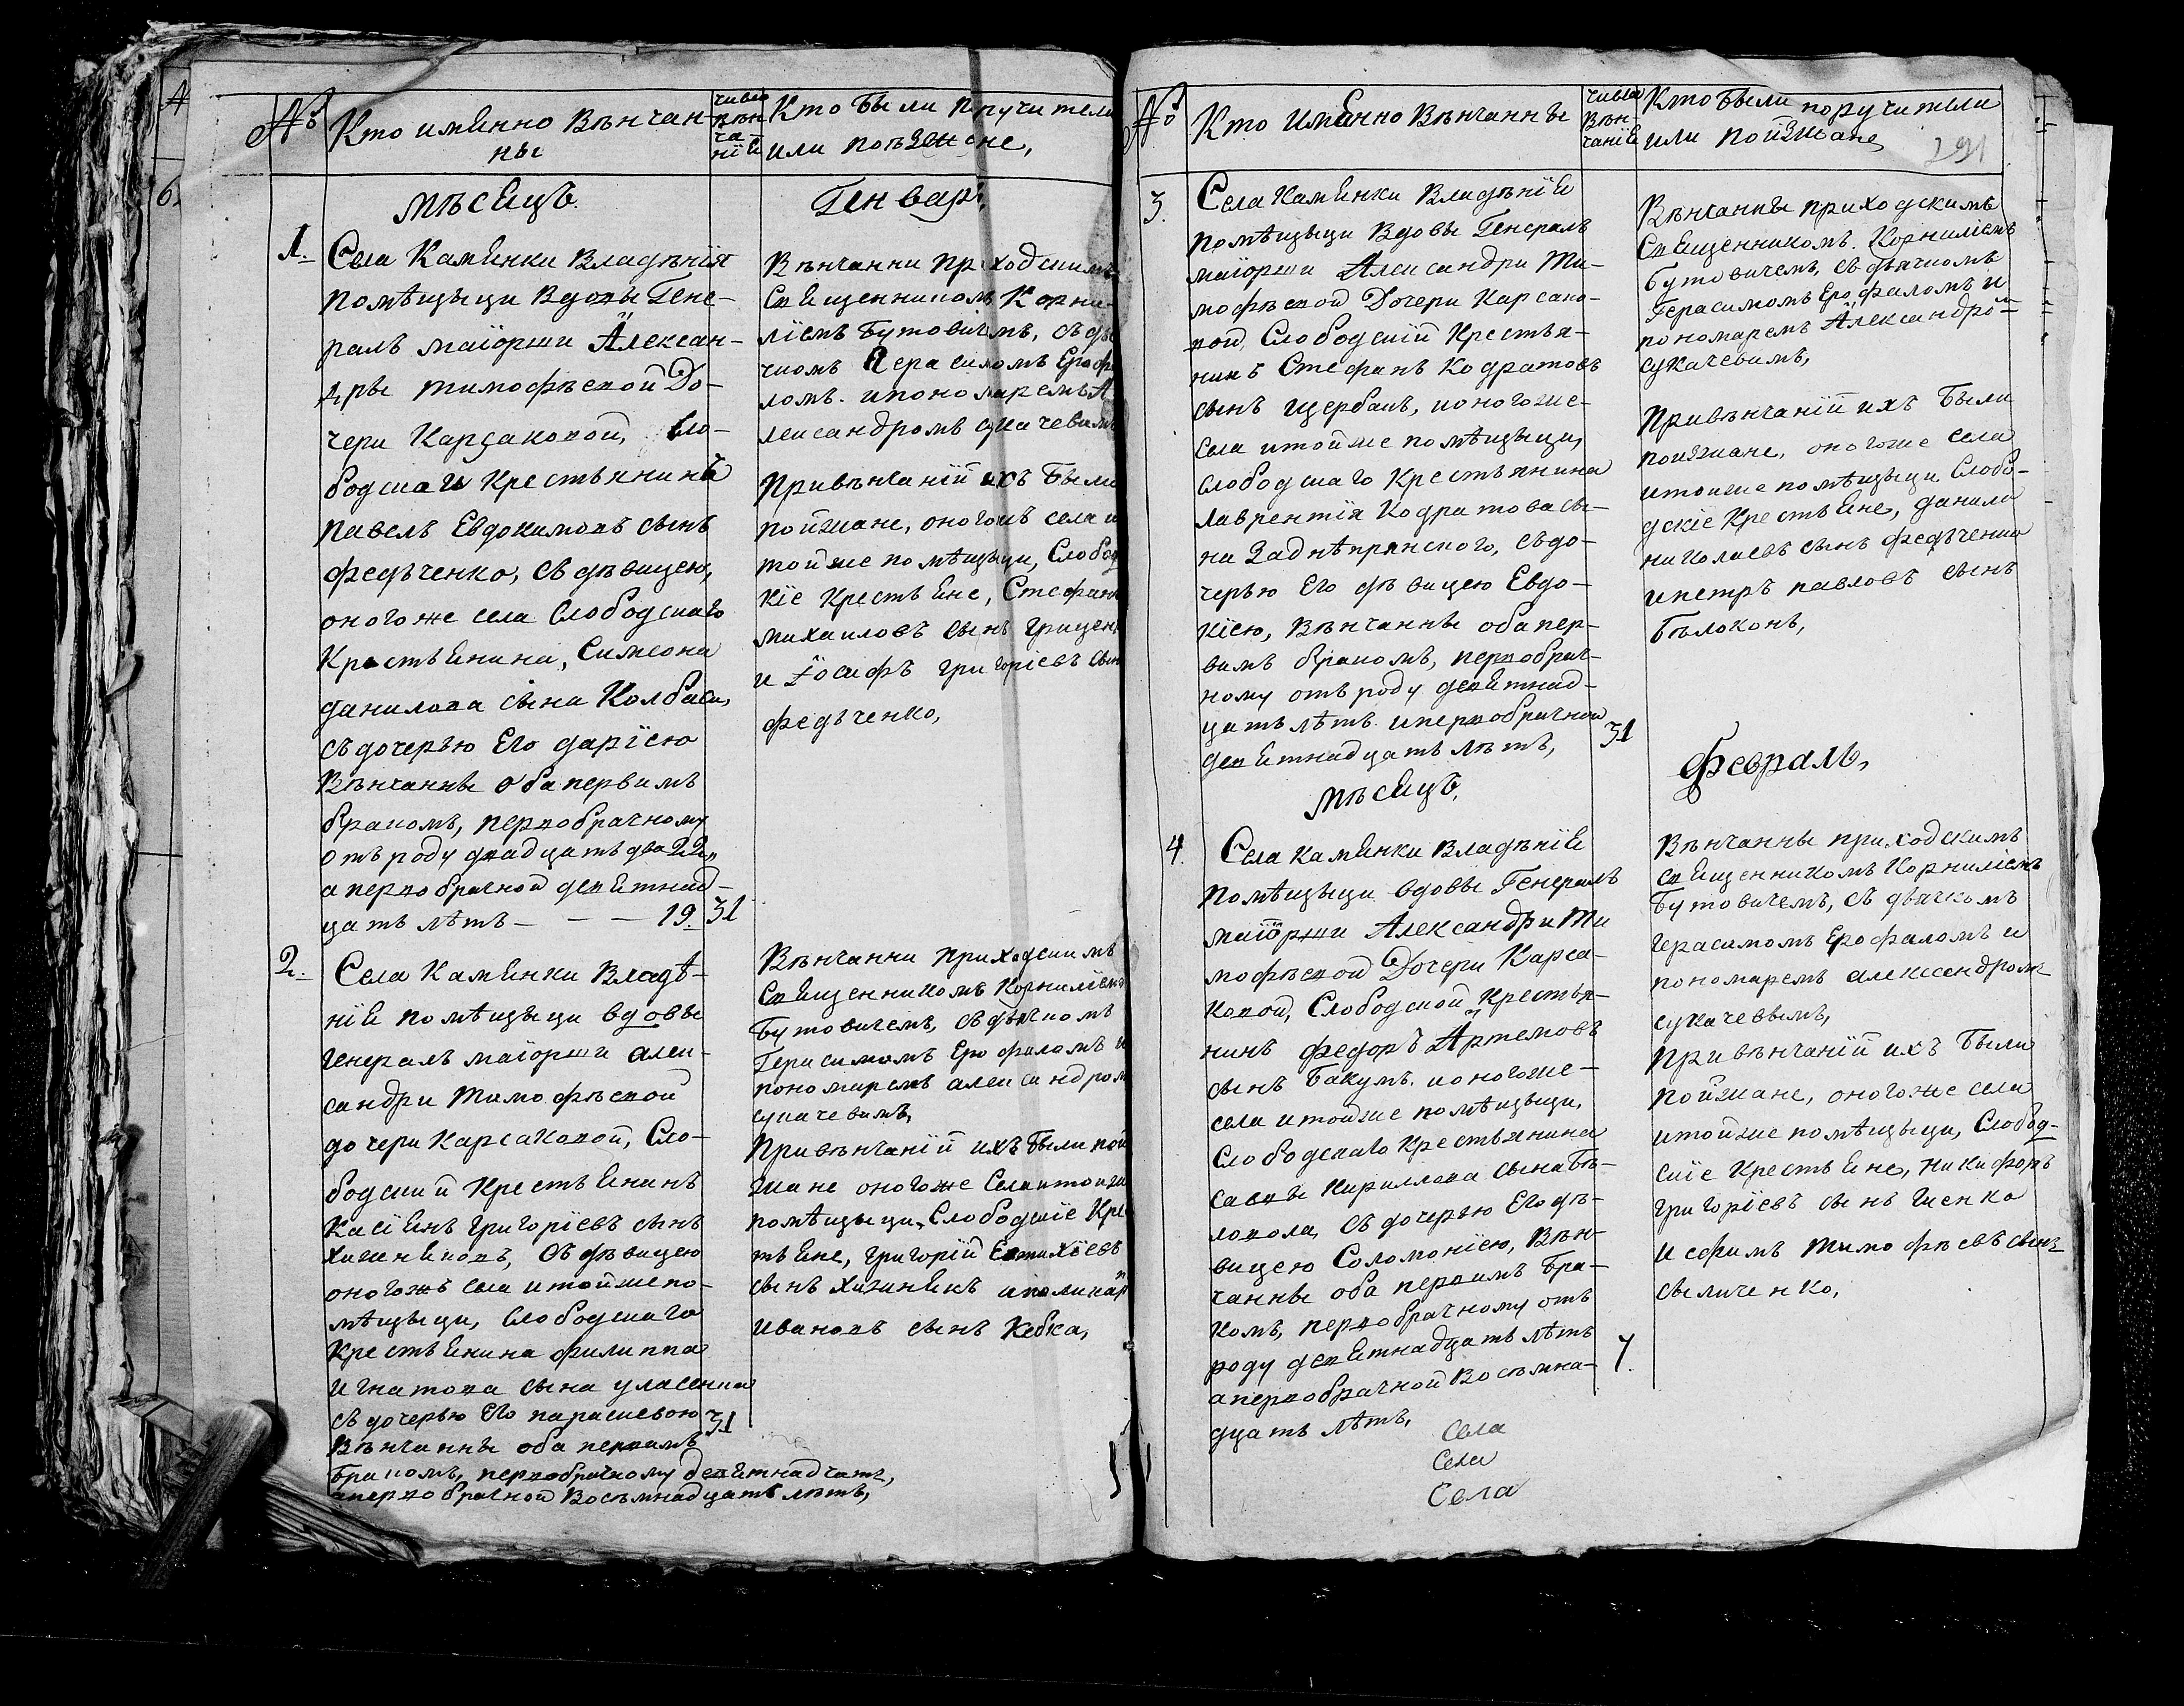 №
Кто имЕнно Вѣнчан-
ны
числа
вѣн-
ча-
ніи
Кто были пручители
или поѣзжане,
мѣсЕцъ
Генвар:
1.
Села КамЕнки Владѣнія
помѣщыци Вдовы Гене-
ралъ маіорши Алексан-
дры тимофѣевой До-
чери Карсаковой, Сло-
бодскаго Крестьянинъ
павелъ Евдокимовъ сынъ
федьченко, съ дѣвицею,
оного же села Слободскаго
КрестьЕнина, Симеона
данилова сына Колбаси,
съ дочерью Его даріею
Вѣнчанны оба первимъ
бракомъ, первобрачному
отъ роду двадцать два 22,
а первобрачной девЕтнад-
цать лѣтъ — — — 19.
31
Вѣнчанни приходскимъ
СвЕщенникомъ Корни-
ліемъ Бутовичемъ, съ дь
чкомъ Герасимомъ Ероф
ломъ. и пономаремъ А
лександромъ сукачевимъ
привѣнчаній ихъ были
пойзжане, оногожъ села и
тойже помѣщыци, Слобод
кіе КрестьЕне, Стефанъ
михаиловъ сынъ гриценк
и Іосифъ григоріевъ сын
федьченко,
2.
Села КамЕнки Владѣ-
ніЕ помѣщыци вдовы
генералъ маіорши алек-
сандри тимофѣевой
дочери Карсаковой, Сло-
бодский КрестьЕнинъ
КасіЕнъ григоріевъ сынъ
хиженЕковъ, съ дѣвицею
оногожъ села и тойже по-
мѣщыци, Слободскаго
КрестьЕнина филиппа
игнатова сына уласенка
съ дочерью Его параскевою
31
Вѣнчанны оба первимъ
бракомъ, первобрачному девЕтнадцать,
а первобрачной Восѣмнадцать лѣтъ,
Вѣнчанни приходскимъ
СвЕщенникомъ Корниліемъ
Бутовичемъ, съ дьячкомъ
Герасимомъ Ерофаломъ и
пономаремъ александром
сукачевимъ,
Привѣнчаній ихъ были пой
зжане оногоже Села и тойже
помѣщыци, Слободскіе Кре
тьЕне, григорій Евтихіевъ
сынъ хижинЕкъ
ивановъ сынъ Кебка,
№
Кто имЕнно Вѣнчанны
числа
Вѣн-
чаніЕ
Кто были поручители
или пойзжане,
291
3.
Села КамЕнки ВладѣніЕ
помѣщыци Вдовы Генералъ
маіорши Александри Ти-
мофѣевой Дочери Карсако-
вой, Слободскій Крестья-
нинъ Стефанъ Кодратовъ
сынъ щербакъ, и оногоже-
села и тойже помѣщыци,
слободскаго Крестьянина
лаврентія Кодратова сы-
на Заднѣпрянского, съ до-
черью Его дѣвицею Евдо-
кіею, Вѣнчанны оба пер-
вимъ бракомъ, первобрач-
ному отъ роду девЕтнад-
цать лѣтъ и первобрачной
девЕтнадцать лѣтъ,
31
Вѣнчанны приходскимъ
СвЕщенникомъ. Корниліемъ
бутовичемъ, съ дьячкомъ
Герасимомъ Ерофаломъ и
пономаремъ Александро-
сукачевимъ,
Привѣнчаній ихъ были
пойзжане, оногоже села
и тоиже помѣщыци Слобо-
дскіе КрестьЕне, данило
николаевъ сынъ федьченко
и петръ павловъ сынъ
бѣлоконъ,
мѣсЕцъ,
февраль,
4.
Села КамЕнки ВладѣніЕ
помѣщыци вдовы Генералъ
маіорши Александри Ти
мофѣевой Дочери Карса-
ковой, Слободской Крестья-
нинъ федоръ Артемовъ
сынъ Бакумъ, и оногоже-
села и тойже помѣщыци,
Слободскаго Крестьянина
саввы Кириллова сына Бѣ-
ловола, съ дочерью Его дѣ-
вицею Соломоніею, Вѣн-
чанны оба первимъ бра-
комъ, первобрачному отъ
роду девЕтнадцать лѣтъ
а первобрачной Восѣмна-
дцать лѣтъ,
7.
Вѣнчанны приходскимъ
свЕщенникомъ Корниліемъ
Бутовичемъ, съ дьячкомъ
герасимомъ Ерофаломъ и
пономаремъ александромъ
сукачевымъ,
Привѣнчаній ихъ были
пойзжане, оногоже села
и тойже помѣщыци, Слобод-
скіе КрестьЕне, никифоръ
григоріевъ сынъ
и ефимъ тимофѣевъ сынъ
сыличенко,
Села
Села
Села